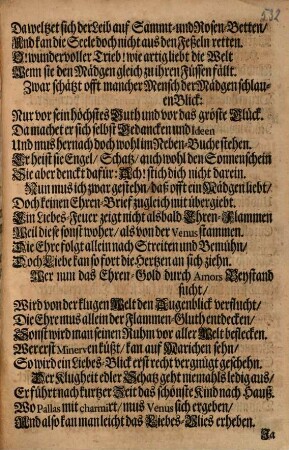 532
Da weltzet sich der Leib auf Sammt- und Rosen-Betten/
Und kan die Seele doch nicht aus den Feßeln retten.
O! wundervoller Trieb! wie artig liebt die Welt
Wenn sie den Mädgen gleich zu ihren Füssen fällt.
Zwar schätzt offt mancher Mensch der Mädgen schlau-
en Blick:
Nur vor sein höchstes Guth und vor das gröste Glück.
Da machet er sich selbst Gedancken und Ideen
Und mus hernach doch wohl im Neben-Buche stehen.
Er heist sie Engel/ Schatz/ auch wohl den Sonnenschein
Sie aber denckt dafür: Ach! stich dich nicht darein.
Nun mus ich zwar gestehn/ daß offt ein Mädgen liebt/
Doch keinen Ehren-Brief zugleich mit übergiebt.
Ein Liebes-Feuer zeigt nicht alsbald Ehren-Flammen
Weil diese sonst woher/ als von der Venus stammen.
Die Ehre folgt allein nach Streiten und Bemühn/
Doch Liebe kan so fort die Hertzen an sich ziehn.
Wer nun das Ehren-Gold durch Amors Beystand
sucht/
Wird von der klugen Welt den Augenblick verflucht/
Die Ehre mus allein der Flammen-Gluth entdecken/
Sonst wird man seinen Ruhm vor aller Welt beflecken.
Wer erst Minerven küßt/ kan auf Marichen sehn/
So wird ein Liebes-Blick erst recht vergnügt geschehn.
Der Klugheit edler Schatz geht niemahls ledig aus/
Er führt nach kurtzer Zeit das schönste Kind nach Hauß.
Wo Pallas mit charmirt/ mus Venus sich ergeben/
Und also kan man leicht das Liebes-Vlies erheben.
Ja